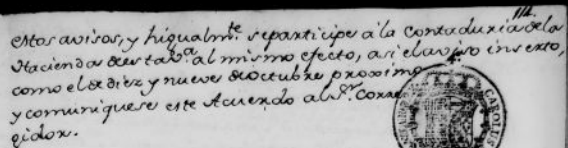 114.
estos avisos, y higualm.te se participe à la Contaduria de la
Hacienda de esta V.a al mismo efecto, asi el aviso inserto,
como el de diez y nueve de octubre proximo
y comuniquese este Acuerdo al S.or Corre
gidor.
CAROLUS